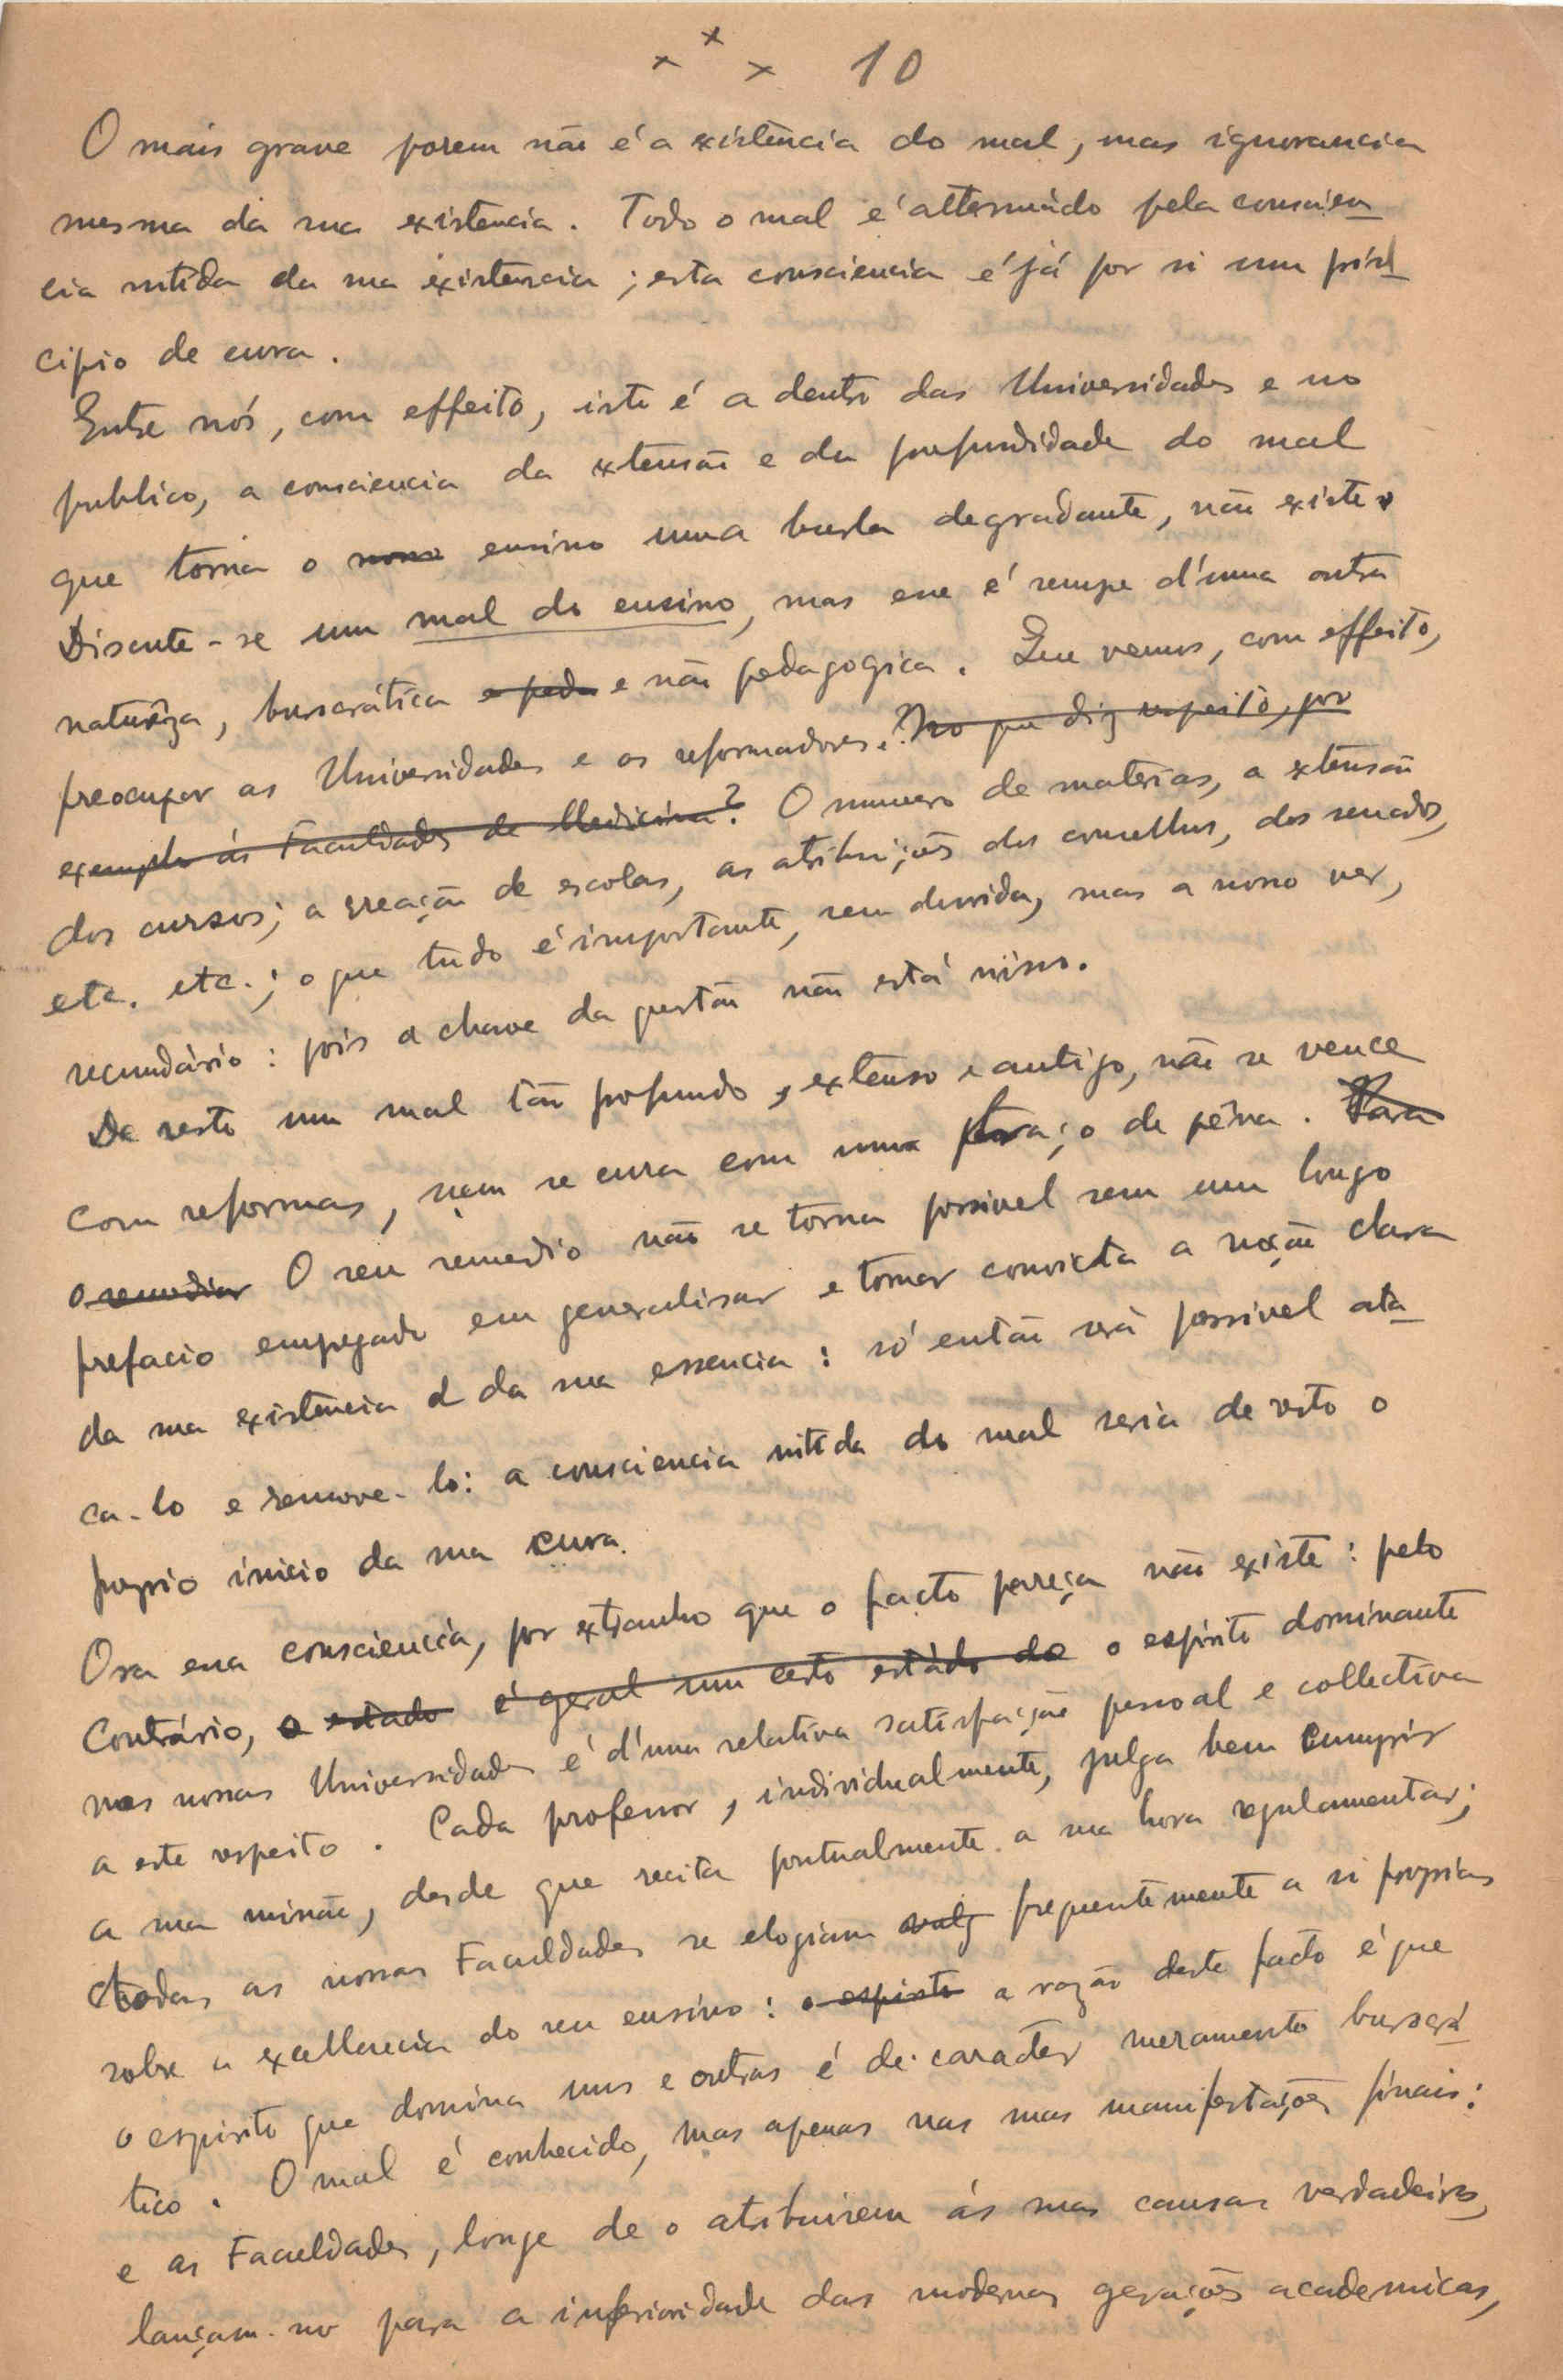 x x x 10
O mais grave porem não é a existência do mal, mas ignorancia
mesma da sua existencia. Todo o mal é attenuado pela conscien
cia nitida da sua existencia; esta consciencia é já por si um prin
cipio de cura.
Entre nós, com effeito, isto é a dentro das Universidades e no
publico, a consciencia da extensão e da profundidade do mal
que torna o nosso ensino uma burla degradante, não existe.
Discute-se um mal do ensino, mas esse é sempre d'uma outra
naturêza, burocrática e peda e não pedagogica. Que vemos, com effeito,
preocupar as Universidades e os reformadores? No que diz respeito, por
exemplo ás Faculdades de Medicina? O numero de materias, a extensão
dos cursos; a creação de escolas, as atribuições dos conselhos, dos senados,
etc. etc.; o que tudo é importante, sem duvida, mas a nosso ver,
secundário: pois a chave da questão não está nisso.
De resto um mal tão profundo, extenso e antigo, não se vence
com reformas, nem se cura com um traço de pêna. Para
o remediar O seu remedio não se torna possivel sem um longo
prefacio empregado em generalisar e tornar convicta a noção clara
da sua existencia e da sua essencia: só então será possivel ata
ca-lo e remove-lo: a consciencia nitida do mal seria de resto o
proprio início da sua cura.
Ora essa consciencia, por extranho que o facto pareça não existe: pelo
Contrário, o estado é geral um certo estádo de o espirito dominante
nas nossas Universidades é d'uma relativa satisfação pessoal e collectiva
a este respeito. Cada professor, individualmente, julga bem cumprir
a sua missão, desde que recita pontualmente a sua hora regulamentar;
todas as nossas Faculdades se elogiam frequentemente a si proprias
sobre a excellencia do seu ensino: o espirito a razão deste facto é que
o espirito que domina uns e outras é de caracter meramente burocrá
tico. O mal é conhecido, mas apenas nas suas manifestações finais:
e as Faculdades, longe de o atribuirem ás suas causas verdadeiras,
lançam-no para a inferioridade das modernas gerações academicas,